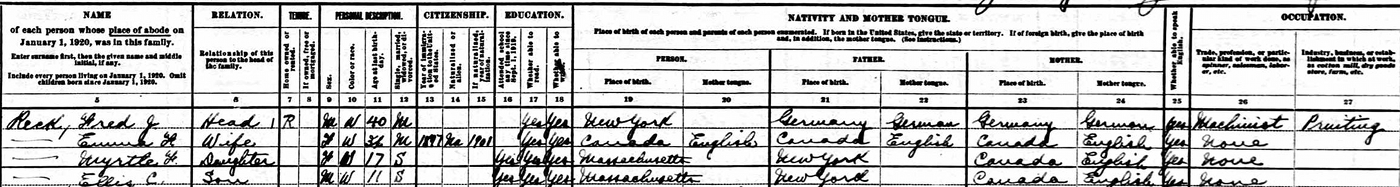 NAME
of each person whose place of abode on
January 1, 1920, was in this family.
Enter surname first, then the given name and middle
initial, if any.
Include every person living on January 1, 1920. Omit
children born since January 1, 1920.
RELATION.
Relationship of this
person to the head of
the family.
TENURE.
Home owned or
rented.
If owned, free or
mortgaged.
PERSONAL DESCRIPTION.
Sex.
Color or race.
Age at last birth-
day.
Single, married,
widowed, or di-
vorced.
CITIZENSHIP.
Year of immigra-
tion to the Unit-
ed States.
Naturalized or
alien.
If naturalized,
year of natural-
ization.
EDUCATION.
Attended school
any time since
Sept. 1, 1919.
Whether able to
read.
Whether able to
write.
NATIVITY AND MOTHER TONGUE.
Place of birth of each person and parents of each person enumerated. If born in the United States, give the state or territory. If of foreign birth, give the place of birth
and, in addition, the mother tongue. (See instructions.)
PERSON.
Place of birth.
Mother tongue.
FATHER.
Place of birth.
Mother tongue.
MOTHER.
Place of birth.
Mother tongue.
Whether able to speak
English.
OCCUPATION.
Trade, profession, or partic-
ular kind of work done, as
spinner, salesman, labor-
er, etc.
Industry, business, or estab-
lishment in which at work,
as cotton mill, dry goods
store, farm, etc.
5 6 7 8 9 10 11 12 13 14 15 16 17 18 19 20 21 22 23 24 25 26 27
Reck, Fred J Head 1 R M W 40 M Yes Yes New York Germany German Germany German Yes Machinist Printing
— Emma H Wife F W 36 M 1897 Na 1901 Yes Yes Canada English Canada English Canada English Yes None
— Myrtle F Daughter F W 17 S Yes Yes Yes Massachusetts New York Canada English Yes None
— Ellis C. Son M W 11 S Yes Yes Yes Massachusetts New York Canada English Yes None